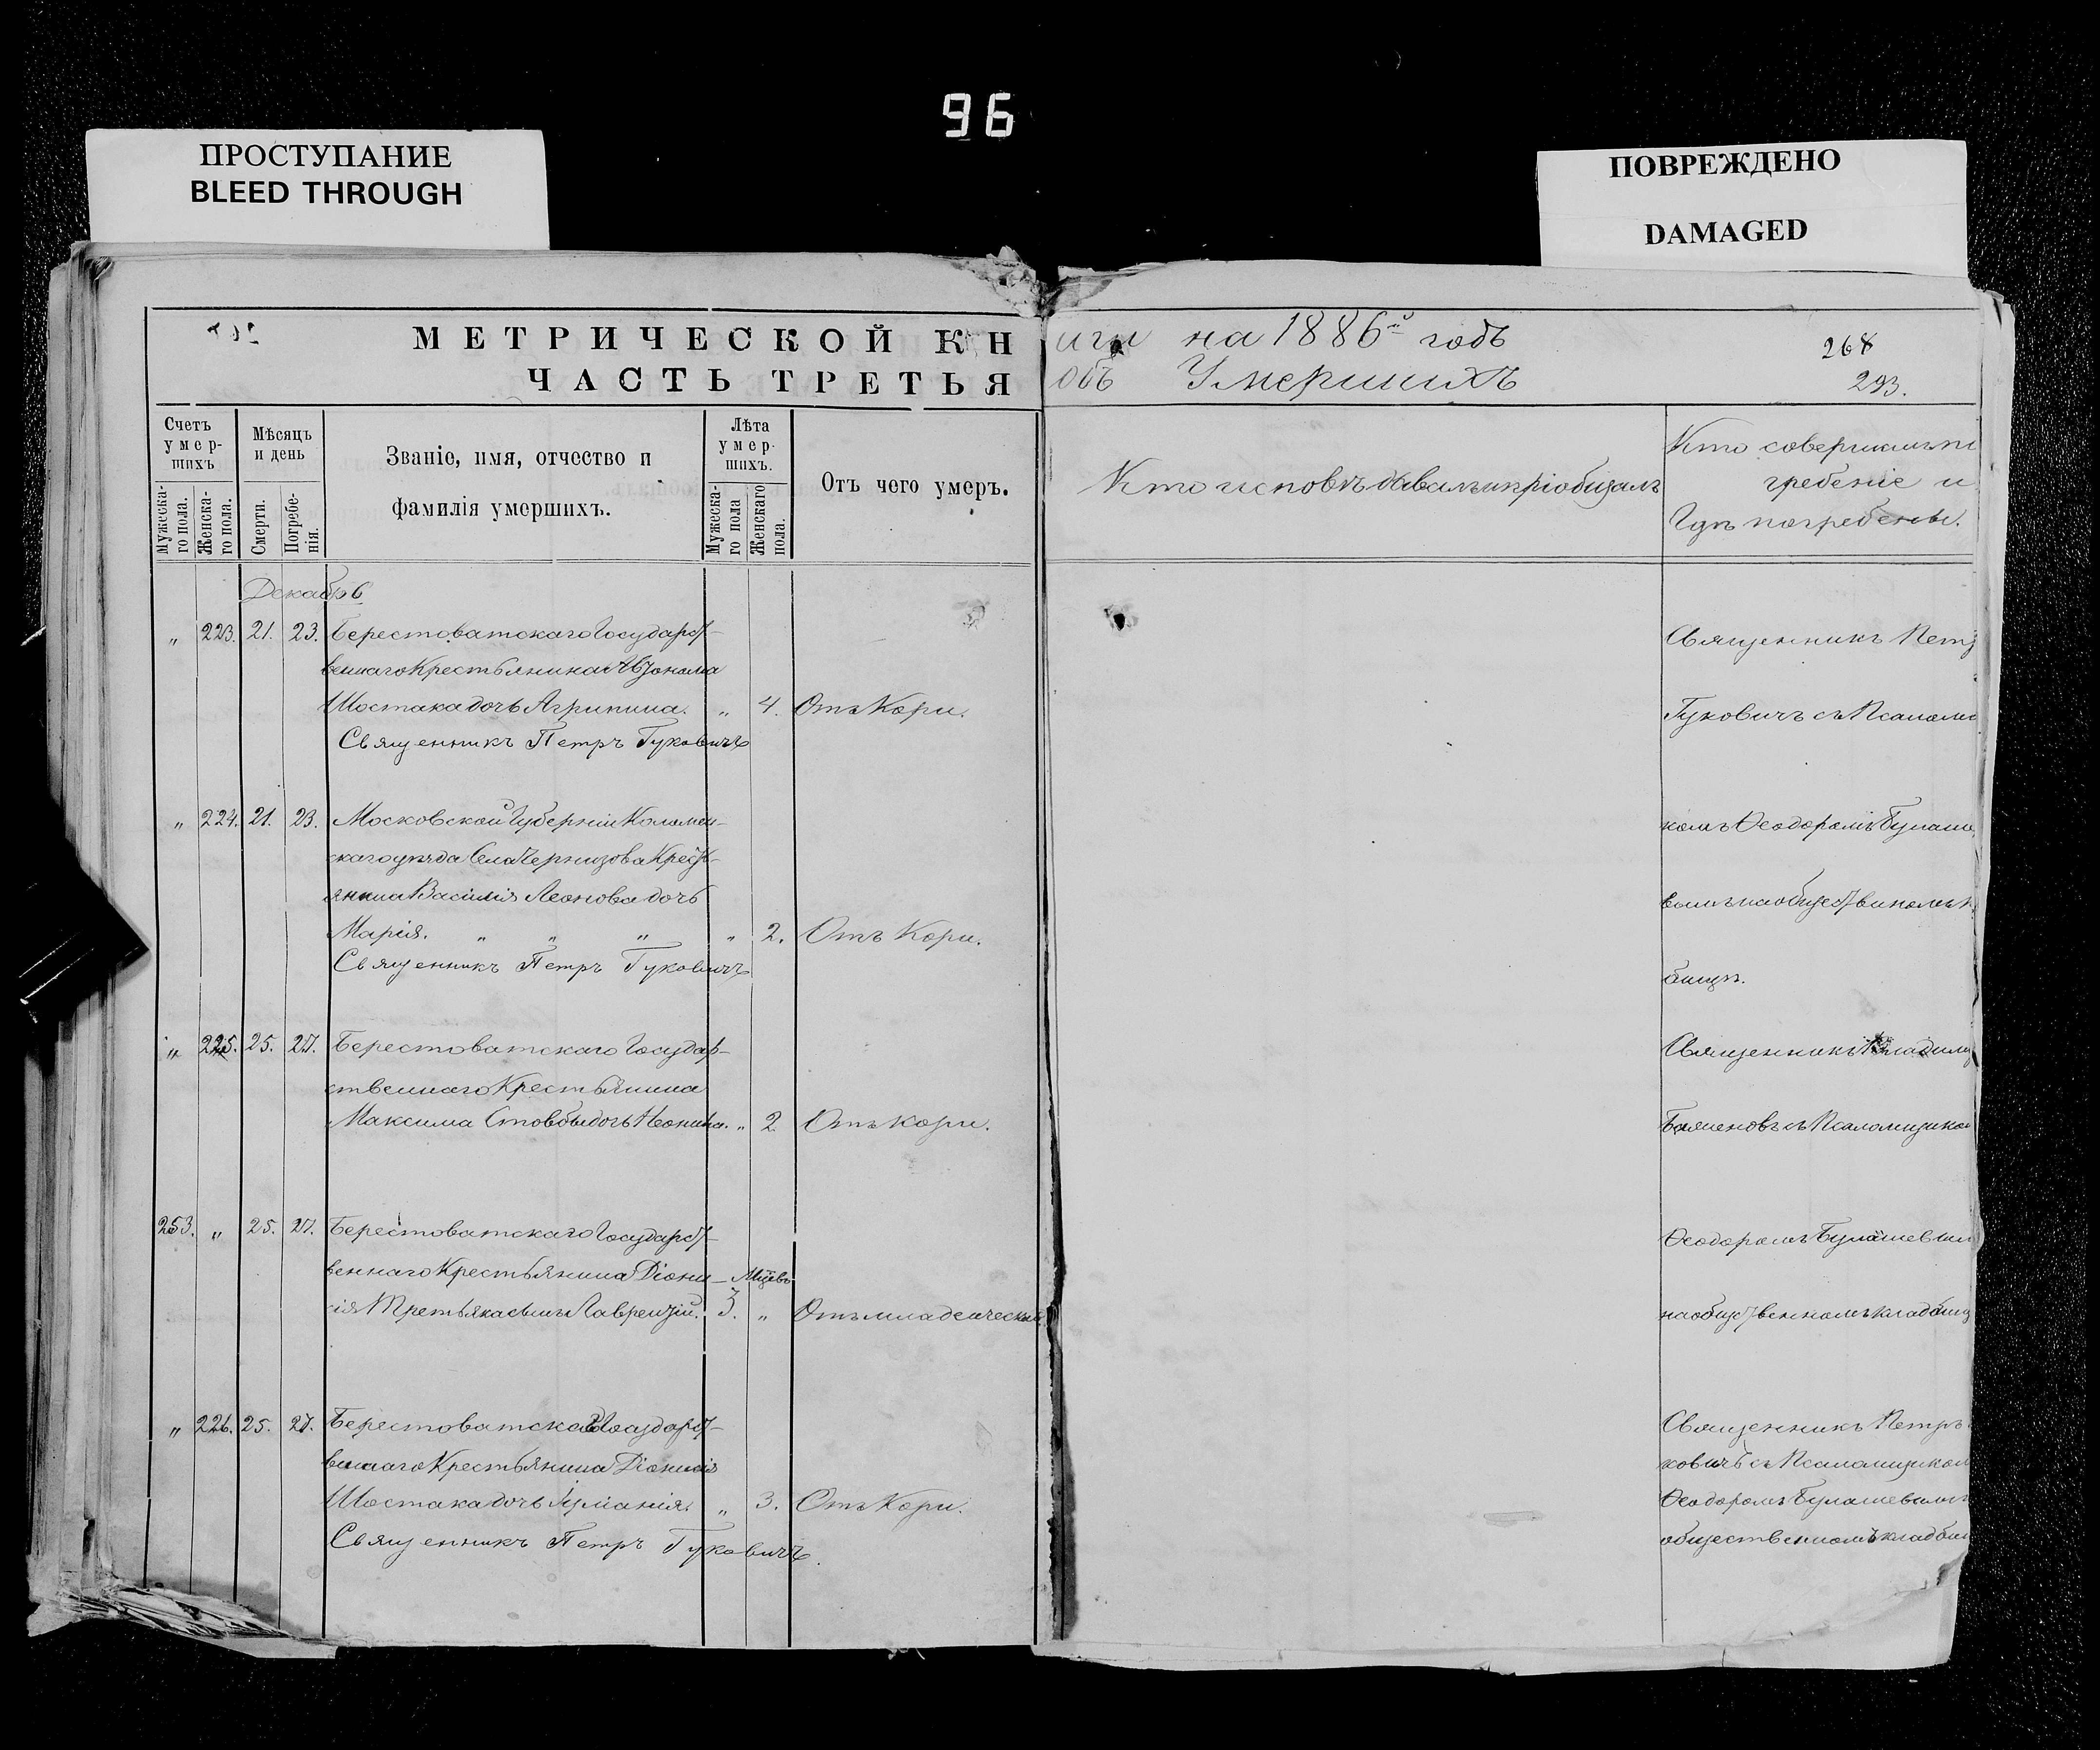 96
ПРОСТУПАНИЕ
BLEED THROUGH
ПОВРЕЖДЕНО
DAMAGED
МЕТРИЧЕСКОЙ КН иги на 1886й годъ
268
ЧАСТЬ ТРЕТЬЯ объ Умершихъ
293.
Счетъ умер-шихъ
Мужеска-го пола.
Женска-го пола.
Мѣсяцъ и день
Смерти.
Погребе-нія.
Званіе, имя, отчество и
фамилія умершихъ.
Лѣта умер-шихъ.
Мужеска-го пола
Женскаго пола.
Отъ чего умеръ.
Кто исповѣдывалъ и пріобщалъ
Кто совершалъ по
гребеніе и
Гдѣ погребены.
Декабрь
„ 223. 21. 23. Берестоватскаго Государст-
веннаго Крестьянина Автонома
Шостака дочь Агрипина. „ 4. Отъ Кори.
Священникъ Петръ Гуковичъ
Священникъ Петр
Гуковичъ съ Псалом
„ 224. 21. 23. Московской Губерніи Коломен-
скаго уѣзда Села Черкизова Кресть-
янина Василія Леонова дочь
Марія. „ „ „ „ 2. Отъ Кори.
Священникъ Петръ Гуковичъ
комъ Ѳеодоромъ Булаше
вымъ на общественомъ к
бищѣ.
„ 225. 25. 27. Берестоватскаго Государ-
ственнаго Крестьянина
Максима Стовбы дочь Неонила. „ 2 Отъ кори.
Священникъ Владимі
съ Псаломщиком
253. „ 25. 27. Берестоватскаго Государст-
веннаго Крестьянина Діони-
сія Третьяка сынъ Лаврентій. Мцевъ 3. „ Отъ младенческой
Ѳеодоромъ Булашевым
на общественномъ кладбищ
„ 226. 25. 27. Берестоватскаго Государст-
веннаго Крестьянина Діонисія
Шостака дочь „ 3. Отъ Кори.
Священникъ Петръ Гуковичъ.
Священникъ Петръ
ковичъ съ Псаломщиком
Ѳеодоромъ Булашевымъ
общественномъ кладби